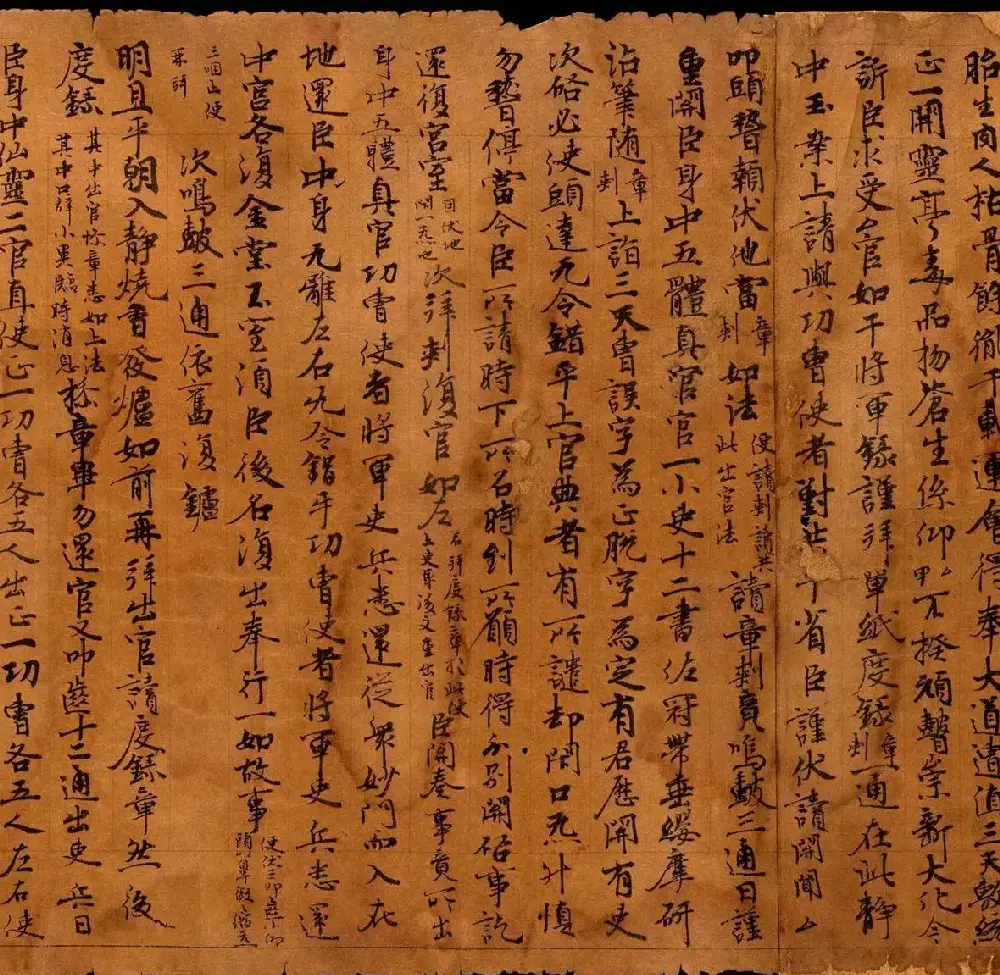 胎生肉人枯骨餘千載運會得奉大道遭值三天統
正一開靈亭毒品物蒼生係仰甲乙不揆頑瞽崇新大化今
訴臣求受△官如干將軍籙謹拜單紙度籙章刺一通在此靜
中玉案上請與功曹使者對共平省臣謹伏讀開聞△
叩頭顙伏地當章刺如法便讀刺讀此出官法讀章刺竟鳴鼓三通曰謹
重開臣身中五體真官官一小史十二書佐冠帶垂纓摩研
沾筆随章刺上詣三天曹誤字為正脫字為定有君歷開有史
次啟必使頭達无令錯乎上官典者有所譴却開口无升慎
勿暫停當令臣所請時下所召時到所願時得分別開啟事訖
還復宮室因伏地開一炁也次拜刺復官如左若拜度籙章於此便上吏畢後又重出官臣開奏事竟所出
身中五體真官功曹使者將軍吏兵悉還從衆妙門而入在
地還臣中身无離左右无令錯乎功曹使者將軍吏兵悉還
中宮各復金堂玉室須臣後召復出奉行一如故事便伏三叩
三咽止便再拜次鳴鼓三通依舊復鑪
明旦平朝入靜燒香發爐如前再拜出官讀度籙章然後
度籙其中出官啟章悉如上法其中口辞小異臨時消息拜章畢勿還官又叩齒十二通出吏兵曰
臣身中仙靈二官直使正一功曹各五人出正一功曹各五人左右使